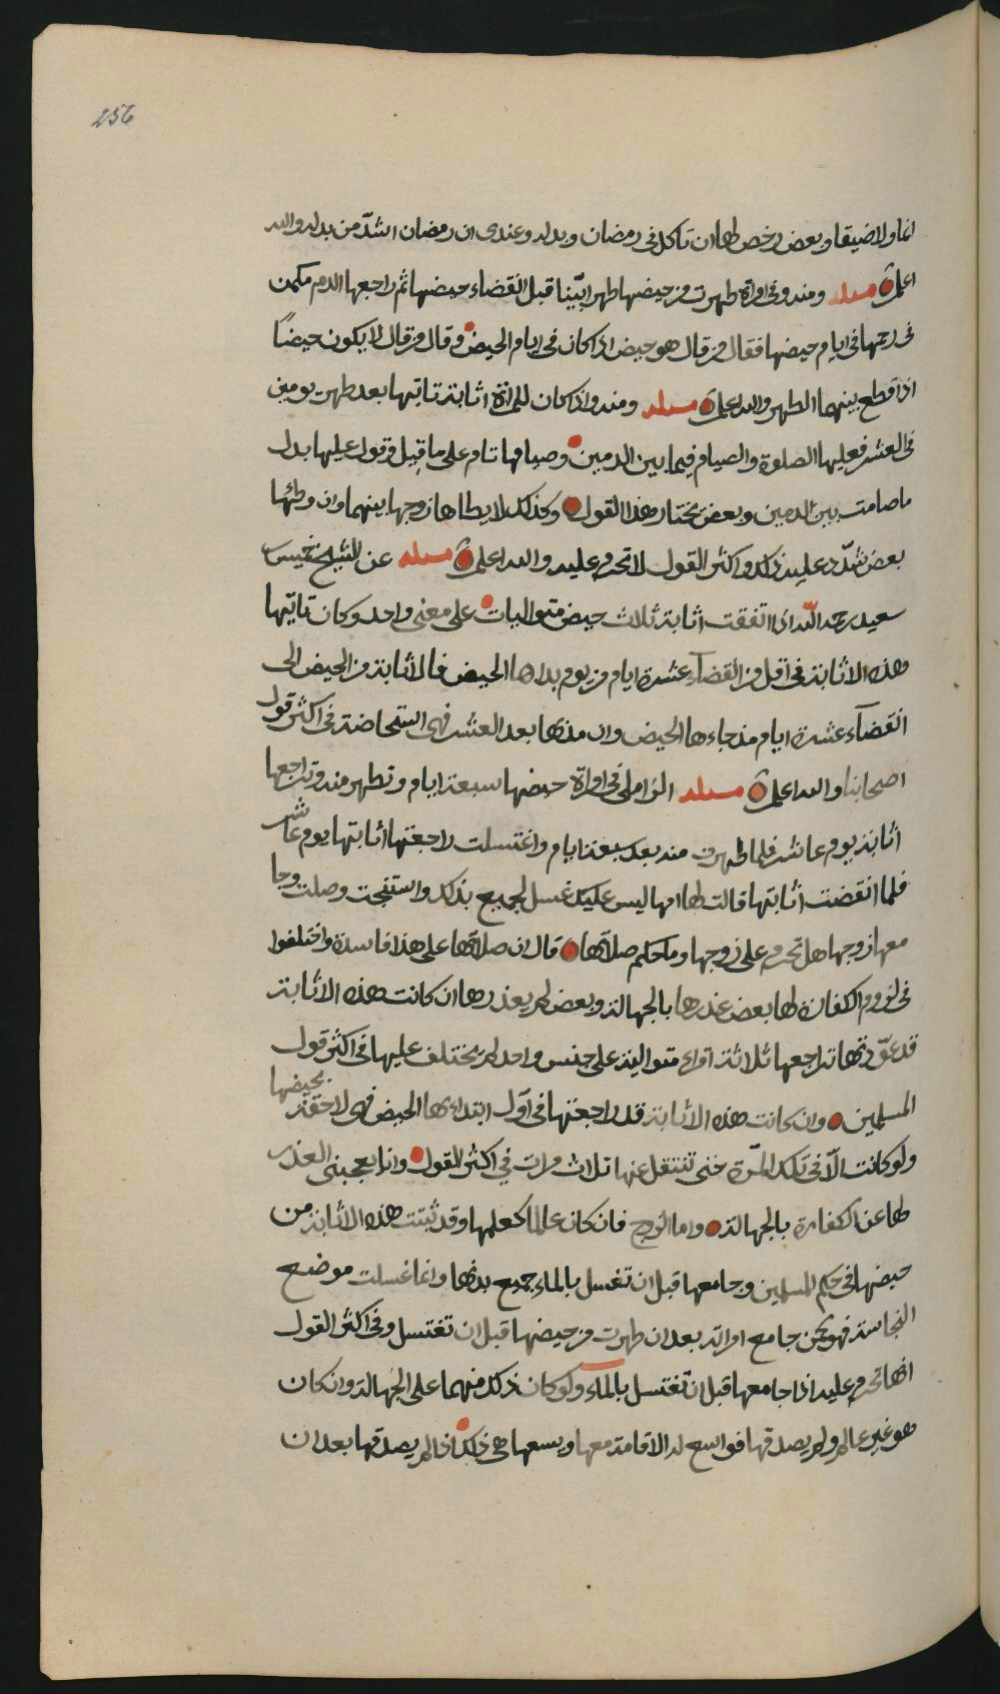 256
انما ولا ضيقا وبعض رخص لها ان تاكل في رمضان وبدله وعندي ان رمضان اشدّ من بدله والله
اعلم مسئلة ومنه وفي امراة طهرت من حيضها طهرا بيّنا قبل انقضاء حيضها ثم راجعها الدم مكمن
في رحمها في ايام حيضها فقال من قال هو حيض اذا كان في ايام الحيض وقال من قال لا يكون حيضاً
اذا قطع بينهما الطهر والله اعلم مسئلة ومنه واذا كان للمراة اثابة تاتيها بعد طهر يومين
في العشر فعليها الصلوة والصيام فيما بين الدمين وصيامها تام على ما قيل وقول عليها بدل
ما صامت بين الدمين وبعض يختار هذا القول وكذلك لا يطاها زوجها بينهما وان وطئها
بعض شدّد عليه ذلك واكثر القول لا تحرم عليه والله اعلم مسئله عن الشيخ خميس
سعيد رحمه الله اذا اتفقت اثابة ثلاث حيض متواليات على معنى واحد وكان تاتيها
هذه الاثابة في اقل من انقضآء عشرة ايام من يوم بداها الحيض فالاثابة من الحيض الى
انقضآء عشرة ايام مذ جاءها الحيض وان مدّها بعد العشر فهي استحاضة في اكثر قول
اصحابنا والله اعلم مسئلة الزاملي في امراة حيضها سبعة ايام وتطهر منه وتراجعها
اثابة يوم عاشر فلما طهرت منه بعد سبعة ايام واغتسلت راجعتها اثابتها يوم عاشر
فلما انقضت اثابتها قالت لها امها ليس عليك غسل لجميع بدنك واستنجت وصلت وجا
معها زوجها هل تحرم على زوجها وما حكم صلاتها قال ان صلاتها على هذا فاسدة واختلفوا
في لزوم الكفارة لها بعض عذرها بالجهالة وبعض لم يعذرها ان كانت هذه الاثابة
قد عوّدتها تراجعها ثلاثة اقراء متوالية على جنس واحد لم يختلف عليها في اكثر قول
المسلمين وان كانت هذه الاثابة قد راجعتها في اوّل ابتداءها الحيض فهي لاحقة بحيضها
ولو كانت الّا في تلك المرّة حتى تنتقل عنها ثلاث مرات في اكثر القول وانا يعجبني العذر
لها عن الكفارة بالجهالة واما الزوج فان كان عالما كعلمها وقد ثبتت هذه الاثابة من
حيضها في حكم المسلمين وجامعها قبل ان تغسل بالماء جميع بدنها وانما غسلت موضع
النجاسة فهو كمن جامع امراته بعد ان طهرت من حيضها قبل ان تغتسل وفي اكثر القول
انها تحرم عليه اذا جامعها قبل ان تغتسل بالماء ولو كان ذلك منهما على الجهالة وان كان
هو غير عالم ولم يصدقها فواسع له الاقامة معها ويسعها هي ذلك اذا لم يصدقها بعد ان